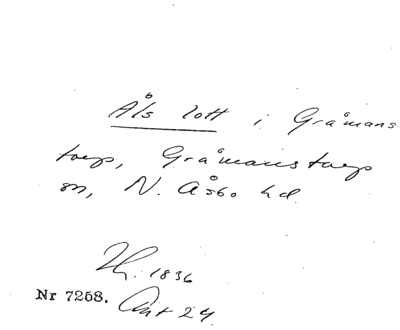 Åls lott i Gråmans
torp, Gråmanstorps
sn, N. Åsbo hd.
Th. 1836
Nr 7258. Ant 24